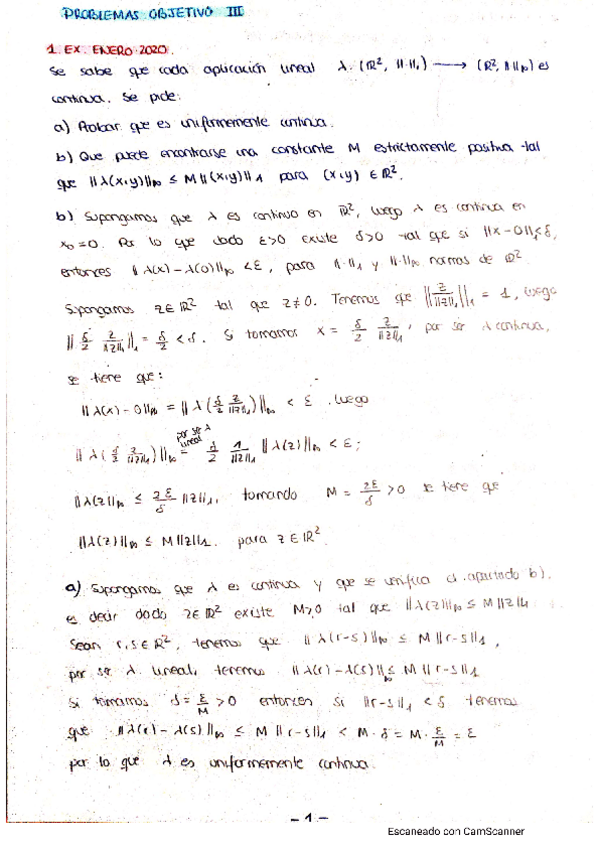 PROBLEMAS OBJETIVO III
1. EX. ENERO 2020.
Se sabe que cada aplicación lineal λ: (ℝ², ‖·‖₁) ⟶ (ℝ², ‖·‖∞) es
continua. Se pide:
a) Probar que es uniformemente continua.
b) Que puede encontrarse una constante M estrictamente positiva tal
que ‖λ(x,y)‖∞ ≤ M‖(x,y)‖₁ para (x,y) ∈ ℝ².
b) Supongamos que λ es continua en ℝ², luego λ es continua en
x₀=0. Por lo que dado ε>0 existe δ>0 tal que si ‖x-0‖₁<δ,
entonces ‖λ(x)-λ(0)‖∞<ε, para ‖·‖₁ y ‖·‖∞ normas de ℝ².
Supongamos z∈ℝ² tal que z≠0. Tenemos que ‖z/‖z‖₁‖₁ = 1, luego
‖δ/2 z/‖z‖₁‖₁ = δ/2 < δ. Si tomamos x = δ/2 z/‖z‖₁, por ser λ continua,
se tiene que:
‖λ(x)-0‖∞ = ‖λ(δ/2 z/‖z‖₁)‖∞ < ε. luego
por ser λ lineal
‖λ(δ/2 z/‖z‖₁)‖∞ = δ/2 1/‖z‖₁ ‖λ(z)‖∞ < ε;
‖λ(z)‖∞ ≤ 2ε/δ ‖z‖₁, tomando M = 2ε/δ >0 se tiene que
‖λ(z)‖∞ ≤ M‖z‖₁. para z∈ℝ².
a) Supongamos que λ es continua y que se verifica el apartado b),
es decir dado z∈ℝ² existe M>0 tal que ‖λ(z)‖∞ ≤ M‖z‖₁
Sean r,s∈ℝ², tenemos que ‖λ(r-s)‖∞ ≤ M‖r-s‖₁,
por ser λ lineal, tenemos ‖λ(r)-λ(s)‖∞ ≤ M‖r-s‖₁
Si tomamos δ=ε/M >0 entonces si ‖r-s‖₁ < δ tenemos
que ‖λ(r)-λ(s)‖∞ ≤ M‖r-s‖₁ < M·δ = M·ε/M = ε
por lo que λ es uniformemente continua.
-1-
Escaneado con CamScanner